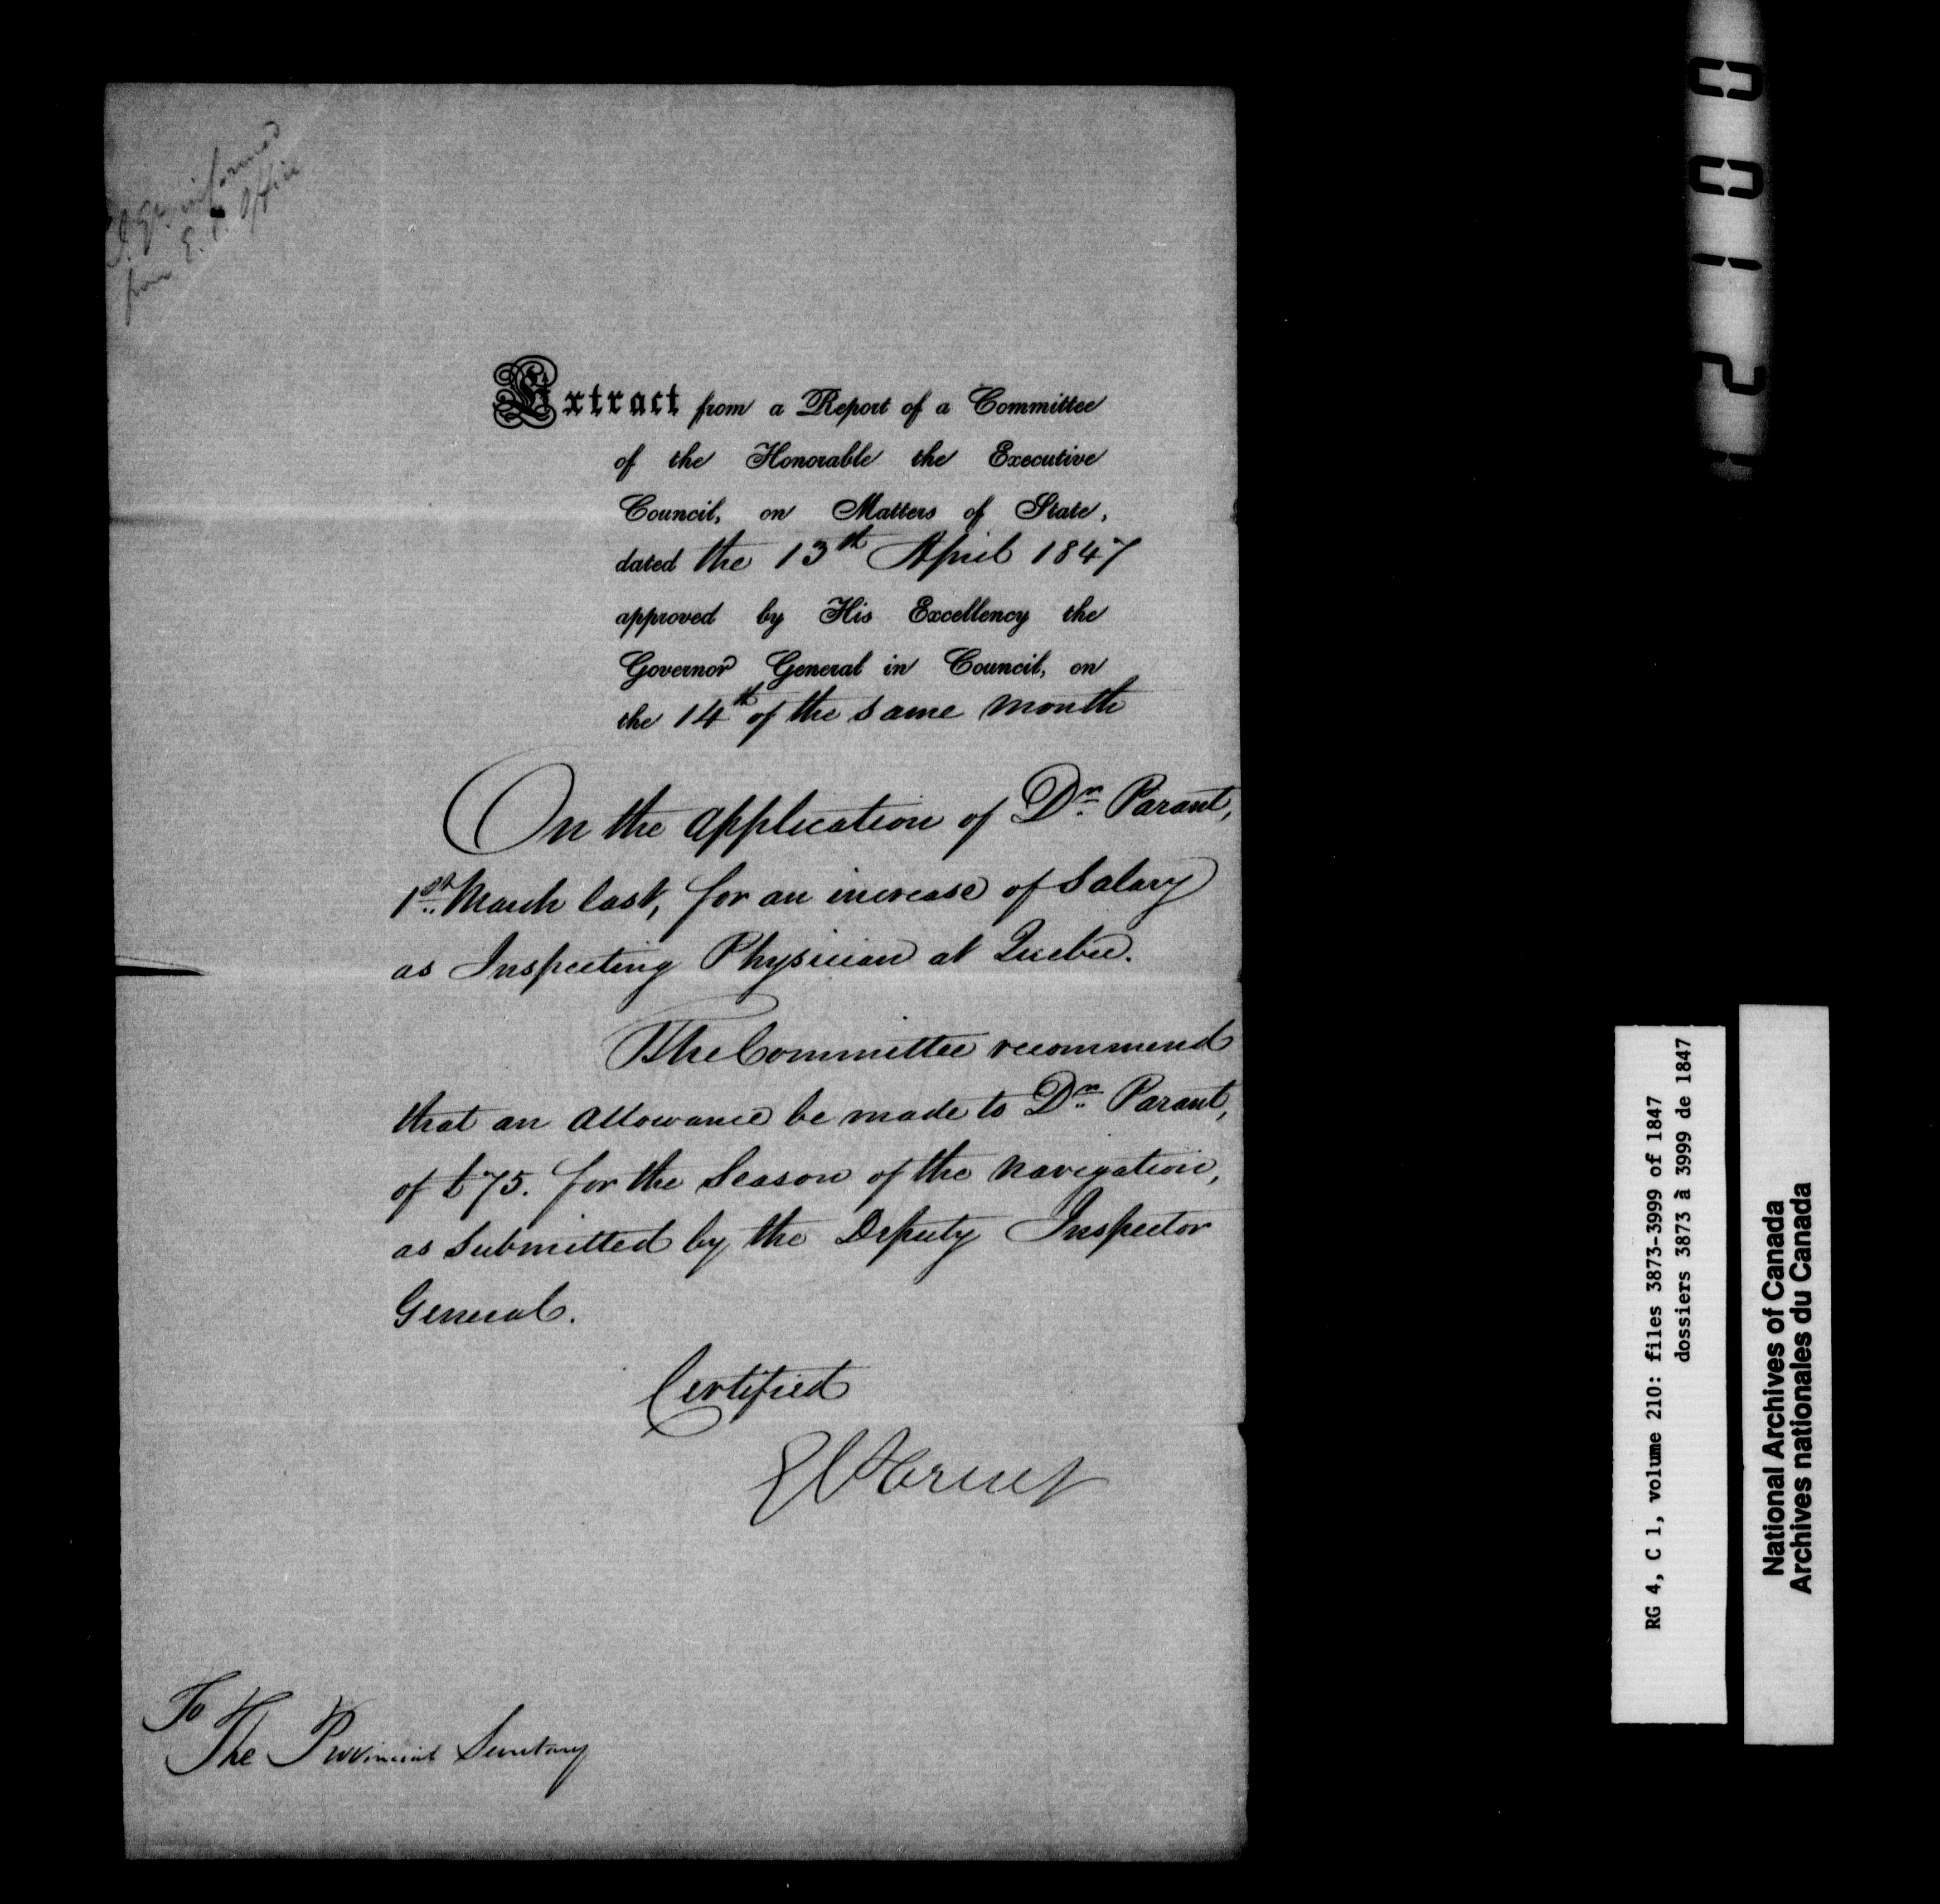 I. G. informed
from E. C. Office
Extract from a Report of a Committee
of the Honorable the Executive
Council, on Matters of State,
dated the 13th April 1847
approved by His Excellency the
Governor General in Council, on
the 14th of the same month
On the application of Dr. Parant,
1st March last, for an increase of Salary
as Inspecting Physician at Quebec.
The Committee recommend
that an allowance be made to Dr. Parant,
of £75. for the Season of the navigation,
as Submitted by the Deputy Inspector
General.
Certified
To
The Provincial Secretary
0012
RG 4, C 1, volume 210: files 3873-3999 of 1847
dossiers 3873 à 3999 de 1847
National Archives of Canada
Archives nationales du Canada